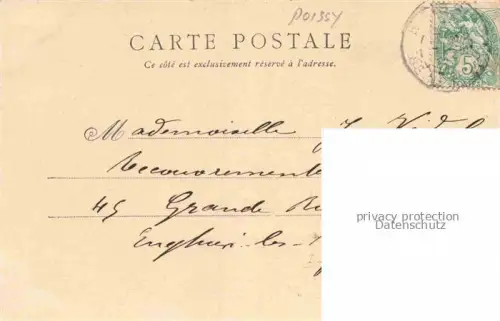 POISSY
CARTE POSTALE
Ce côté est exclusivement réservé à l'adresse.
5
Mademoiselle
Recouvrements
privacy protection
45 Grande
Datenschutz
Enghien-les-